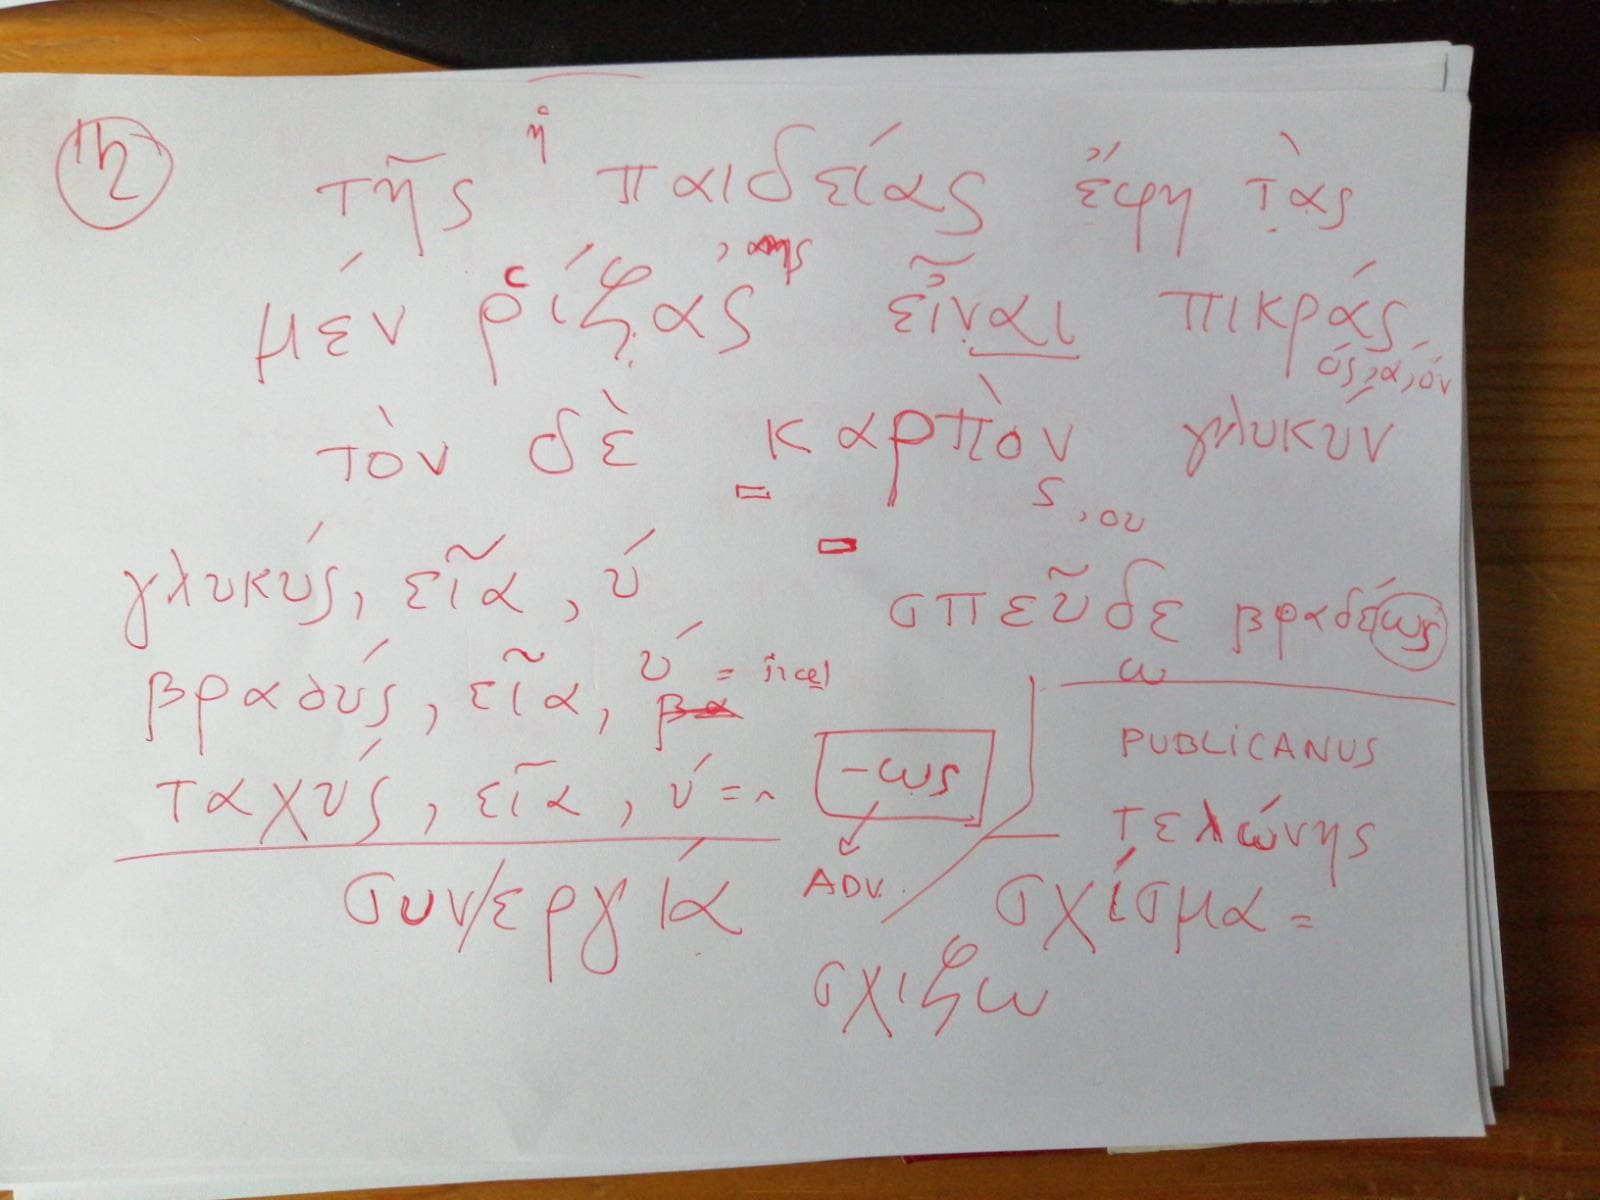 21
ἡ
τῆς παιδείας ἔφη τὰς
μέν ῥίζας εἶναι πικράς
ός, ά, όν
τὸν δὲ καρπὸν γλυκύν
ς, ου
γλυκύς, εῖα, ύ
σπεῦδε βραδέως
ω
βραδύς, εῖα, ύ =
ταχύς, εῖα, ύ = ~
-ως
ADV.
PUBLICANUS
τελώνης
συν/εργία
σχίσμα =
σχιζω